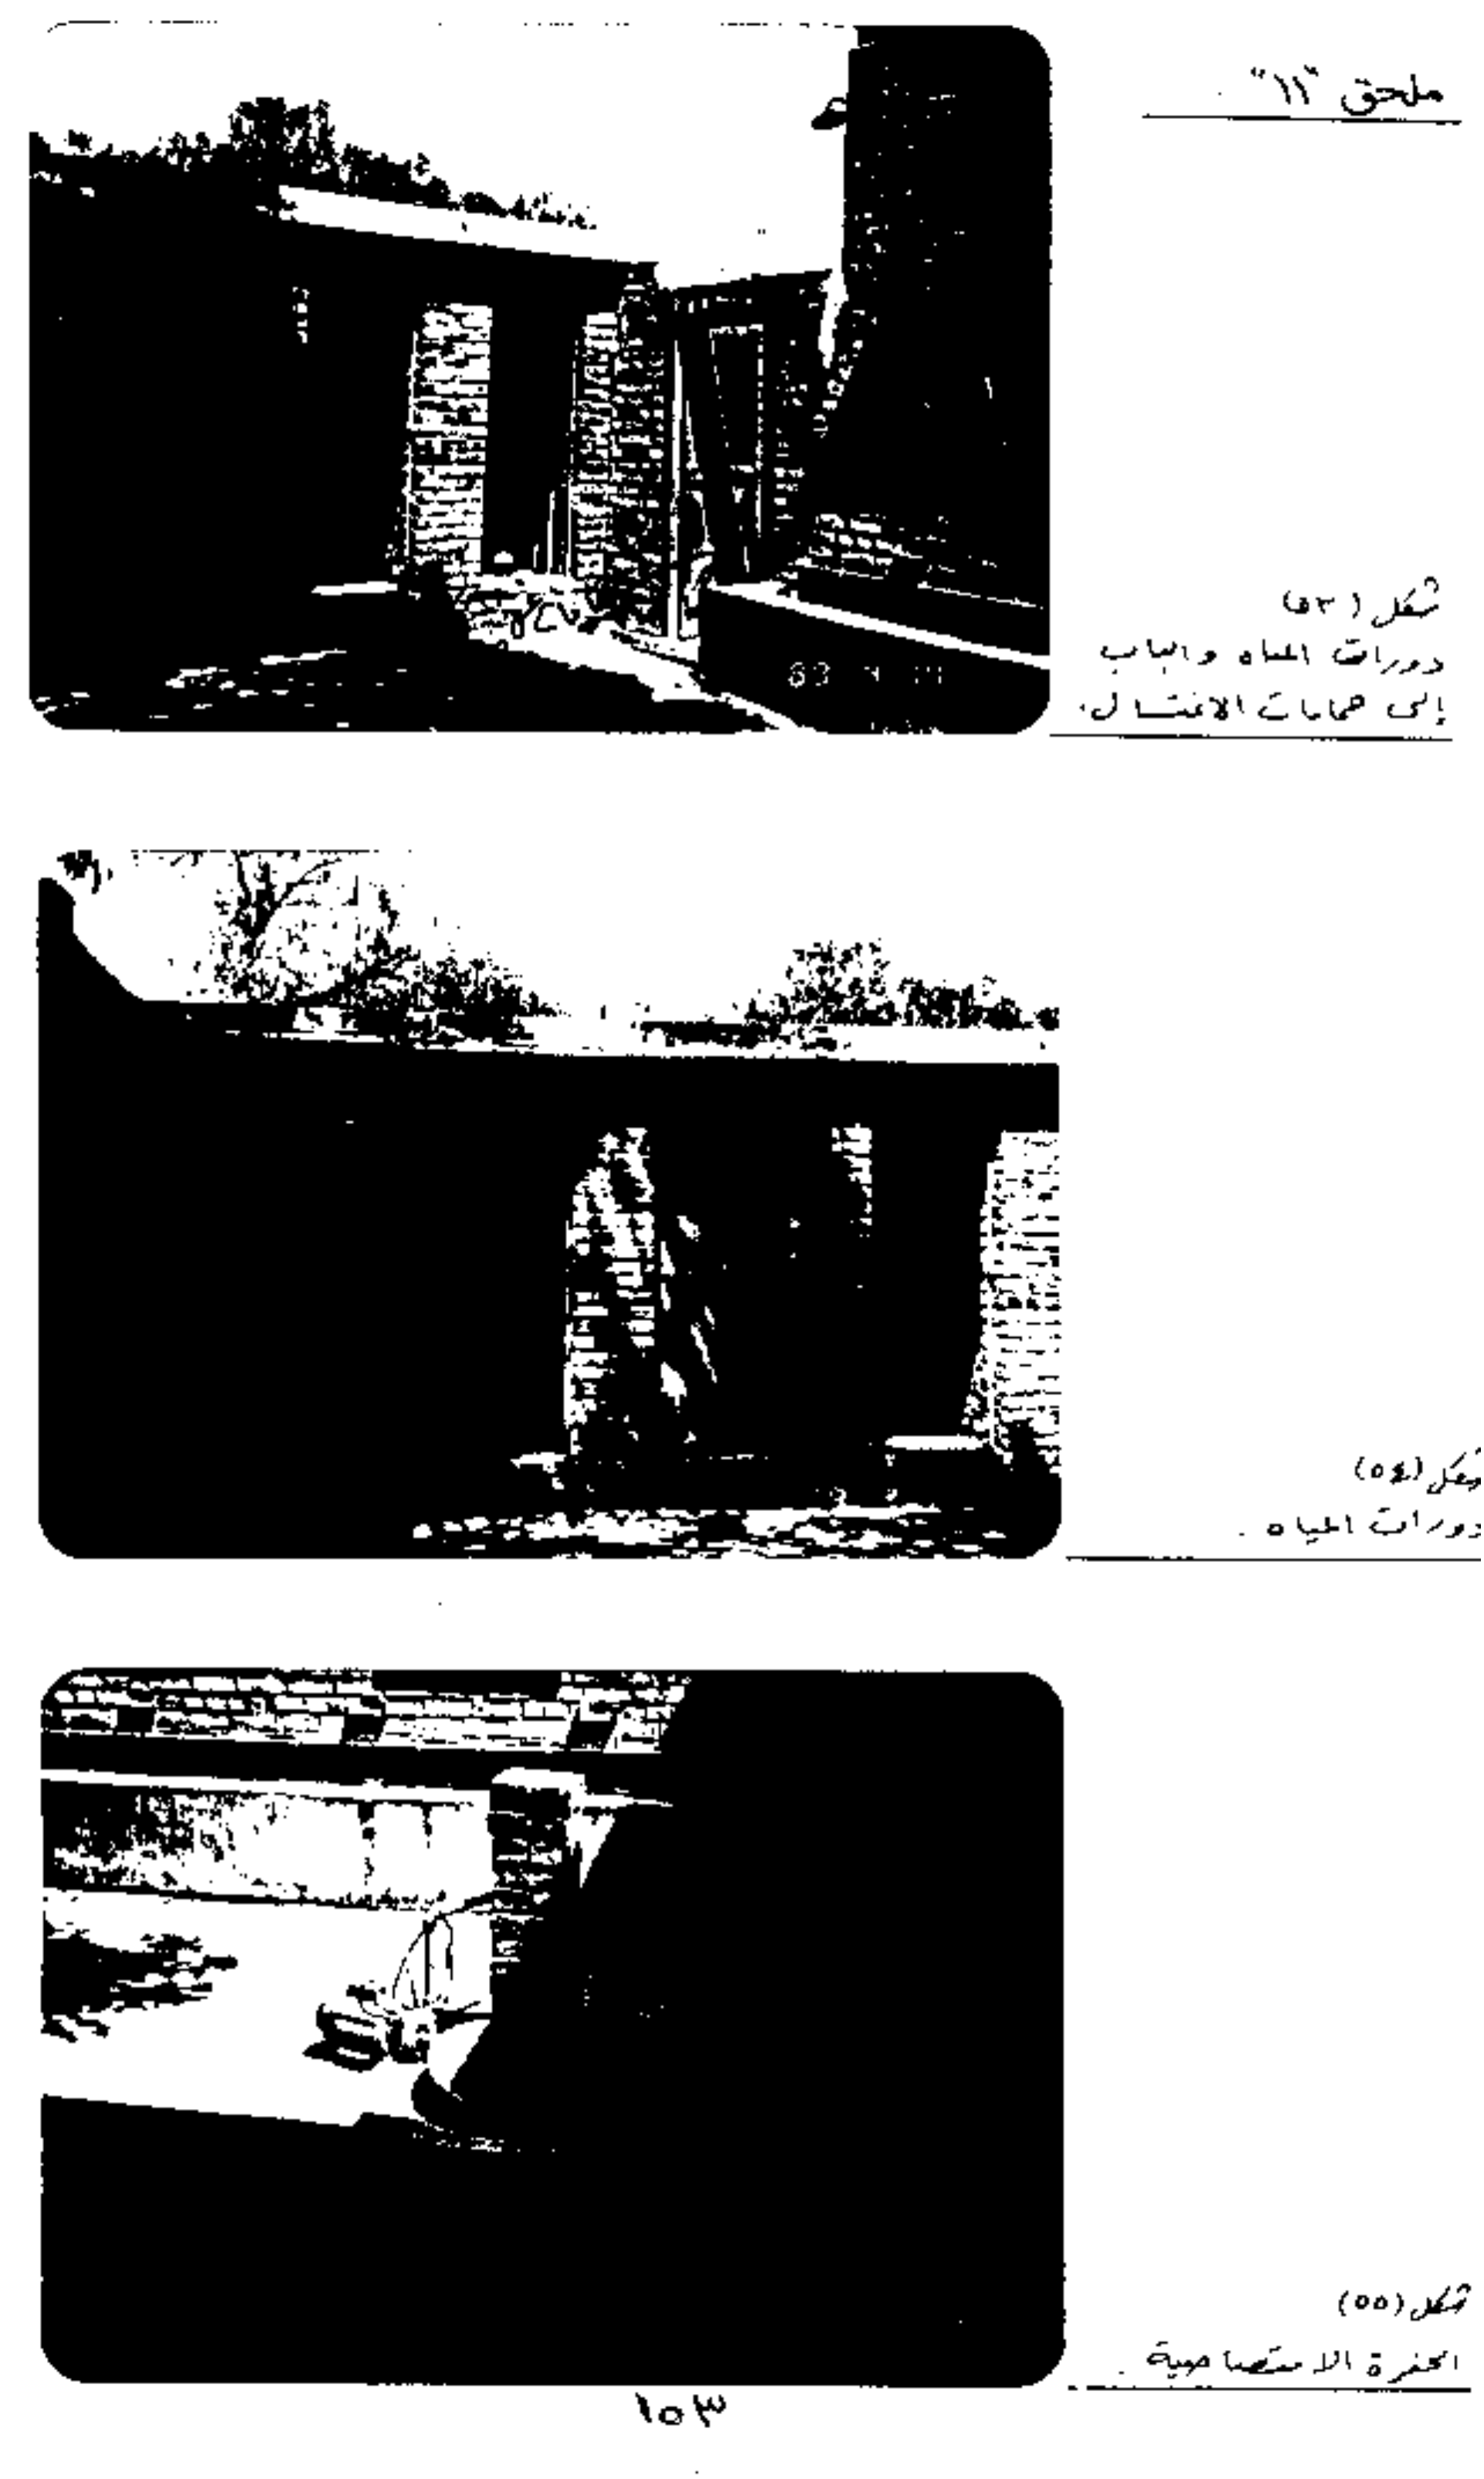 ملحق "١١"
شكل (٥٣)
دورات المياه والباب
إلى حمامات الاغتسال.
شكل (٥٤)
دورات المياه .
شكل (٥٥)
الحفرة الامتصاصية .
١٥٣